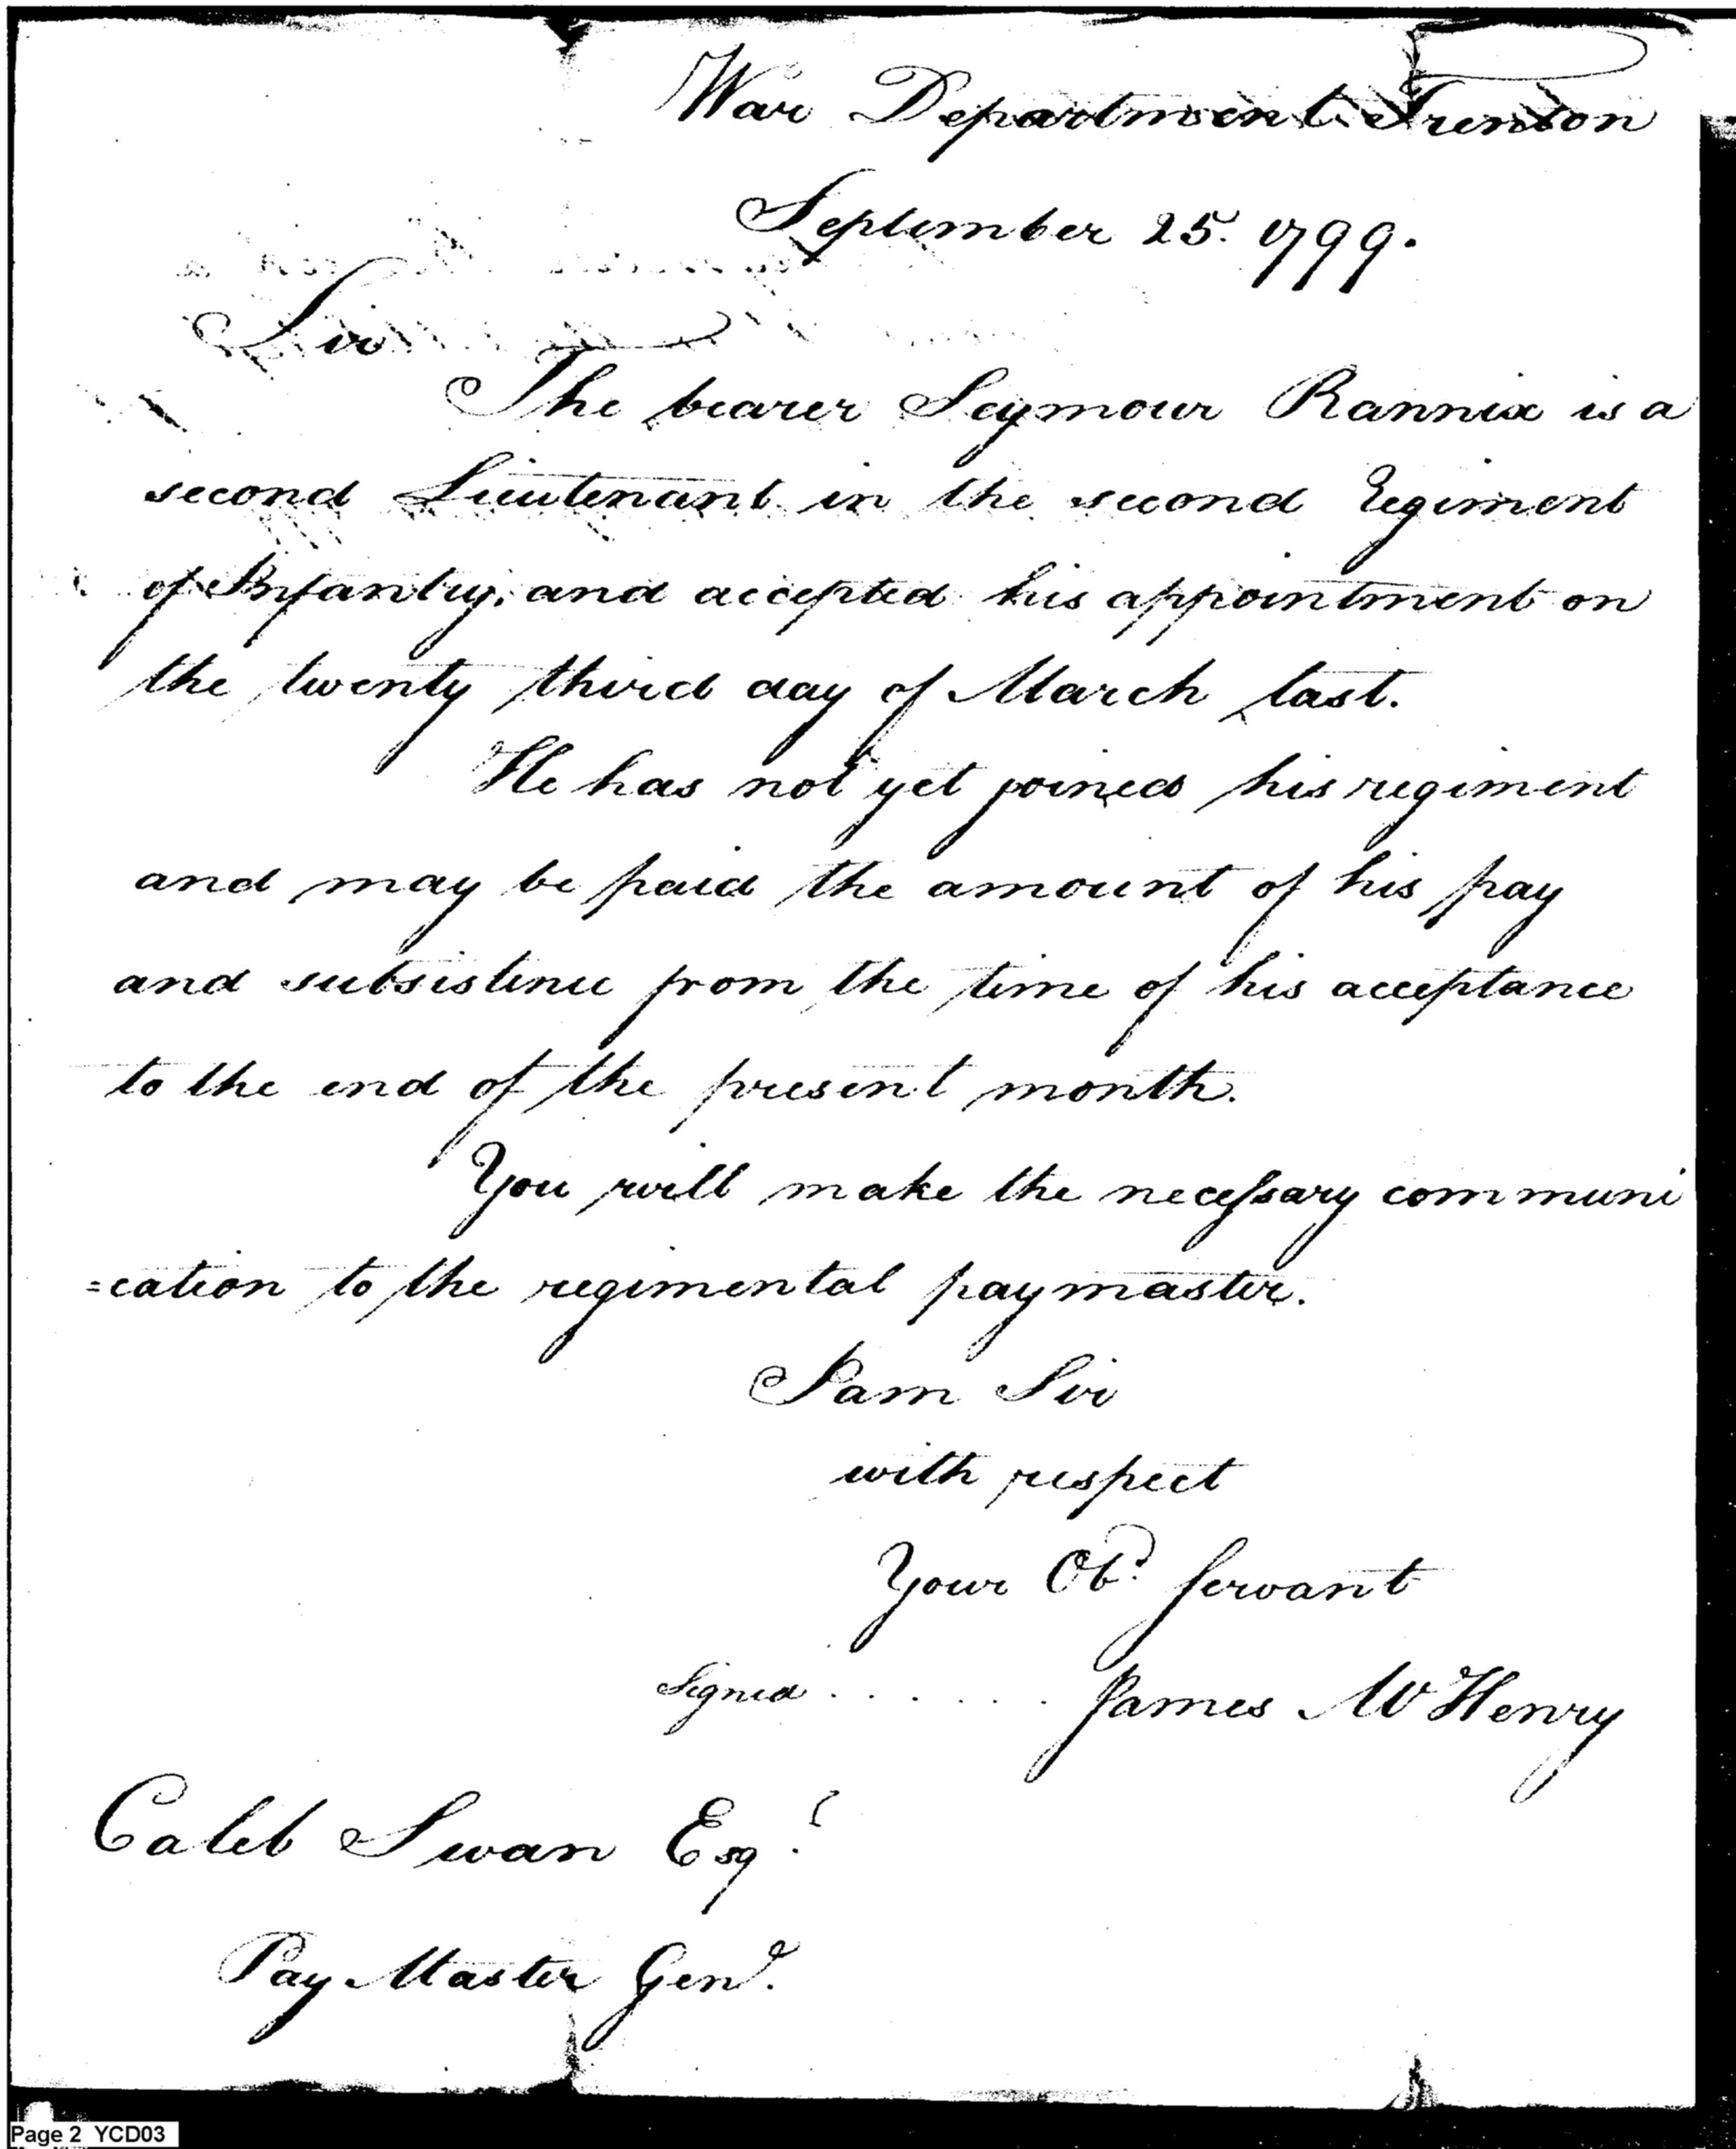 War Department Trenton
September 25. 1799.
Sir
The bearer Seymour Rannix is a
second Lieutenant in the second Regiment
of Infantry, and accepted his appointment on
the twenty third day of March last.
He has not yet joined his regiment
and may be paid the amount of his pay
and subsistence from the time of his acceptance
to the end of the present month.
You will make the necessary communi
=cation to the regimental paymaster.
I am Sir
with respect
Your Obt. servant
Signed . . . . . . James McHenry
Caleb Swan Esqr.
Pay Master Genl.
Page 2 YCD03